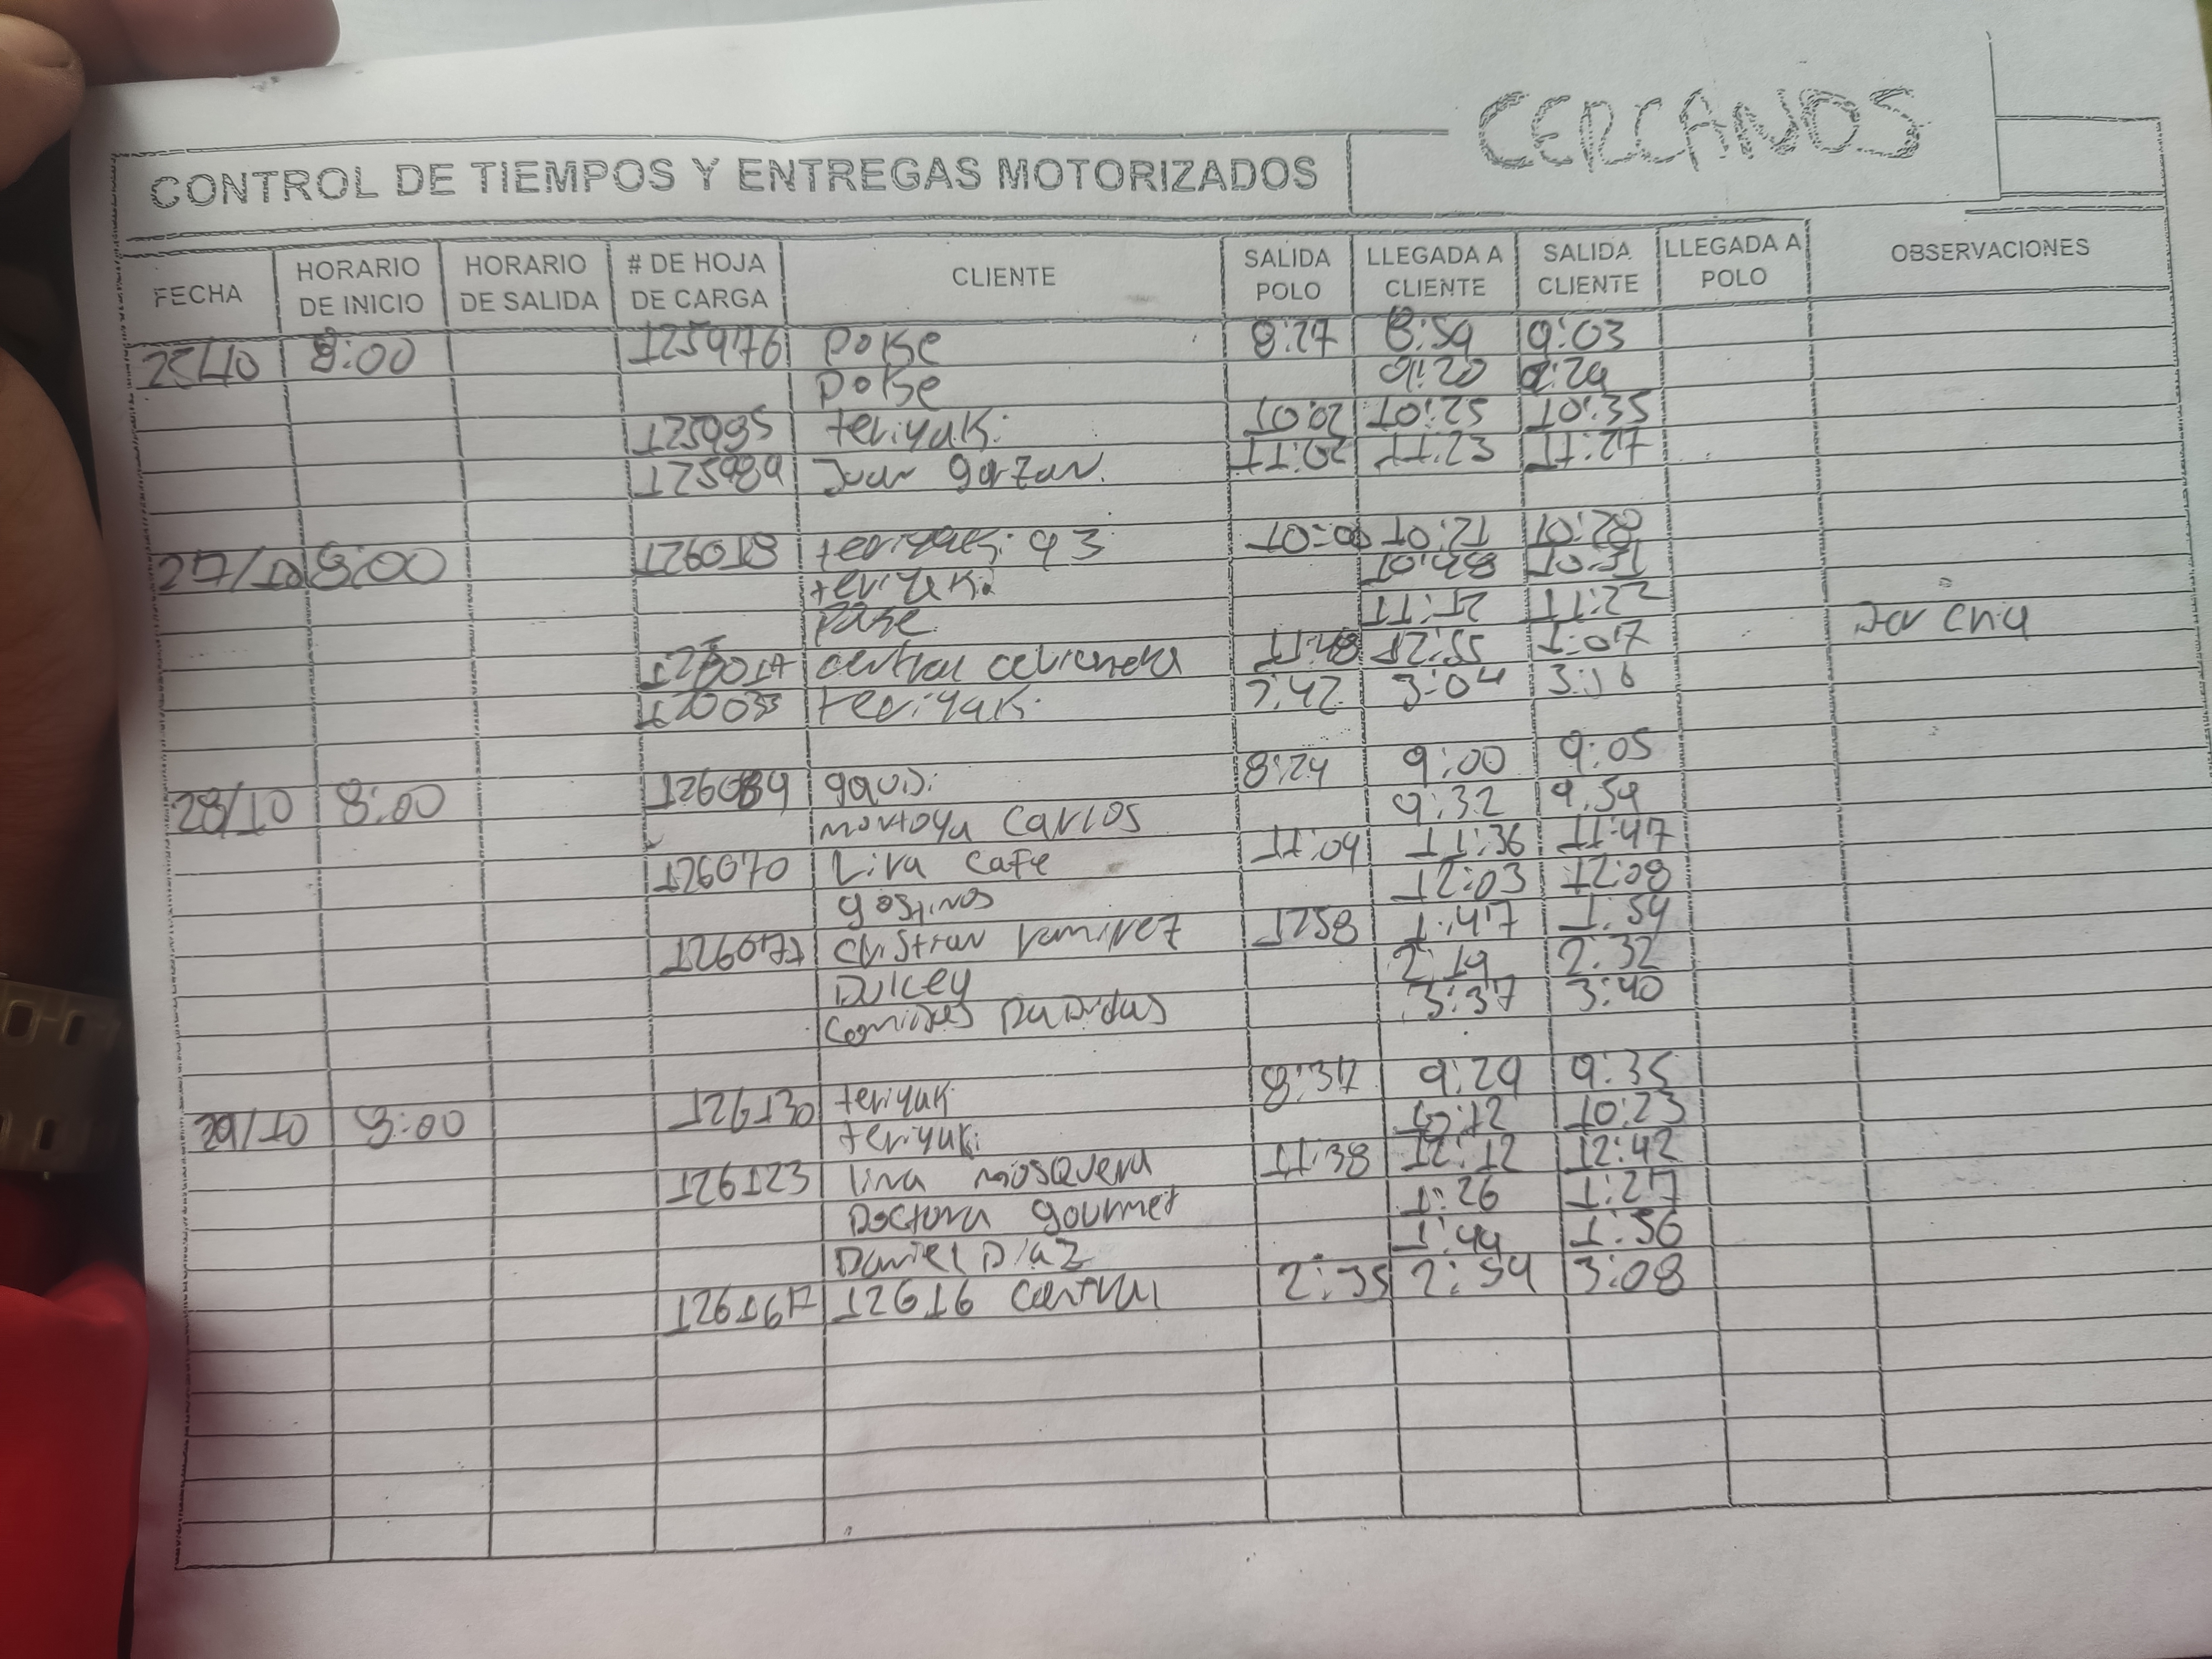 CERCANOS
CONTROL DE TIEMPOS Y ENTREGAS MOTORIZADOS
FECHA HORARIO DE INICIO HORARIO DE SALIDA # DE HOJA DE CARGA CLIENTE SALIDA POLO LLEGADA A CLIENTE SALIDA CLIENTE LLEGADA A POLO OBSERVACIONES
8:00 125976 poke 8:27 8:59 9:03
poke 9:20 9:29
125995 teriyaki 10:20 10:25 10:35
125989 Juan garzon. 11:02 11:23 11:27
27/10 8:00 126018 teriyaki 93 10:00 10:21 10:28
teriyaki 10:48
poke 11:22
central 11:48 12:55 1:07
teriyaki 2:42 3:04 3:16
28/10 8:00 8:24 9:00 9:05
montoya Carlos 9:32 9:54
126070 Lira Cafe 11:04 11:36 11:47
12:03 12:08
126077 Christian ramirez 1258 1:47 1:54
Dulcey 2:19 2:32
3:37 3:40
29/10 8:00 126130 teriyaki 8:37 9:29 9:35
teriyaki 10:12 10:23
126123 lina mosquera 11:38 12:12 12:42
Doctora gourmet 1:26 1:27
Daniel Diaz 1:44 1:56
126167 12616 central 2:35 2:54 3:08